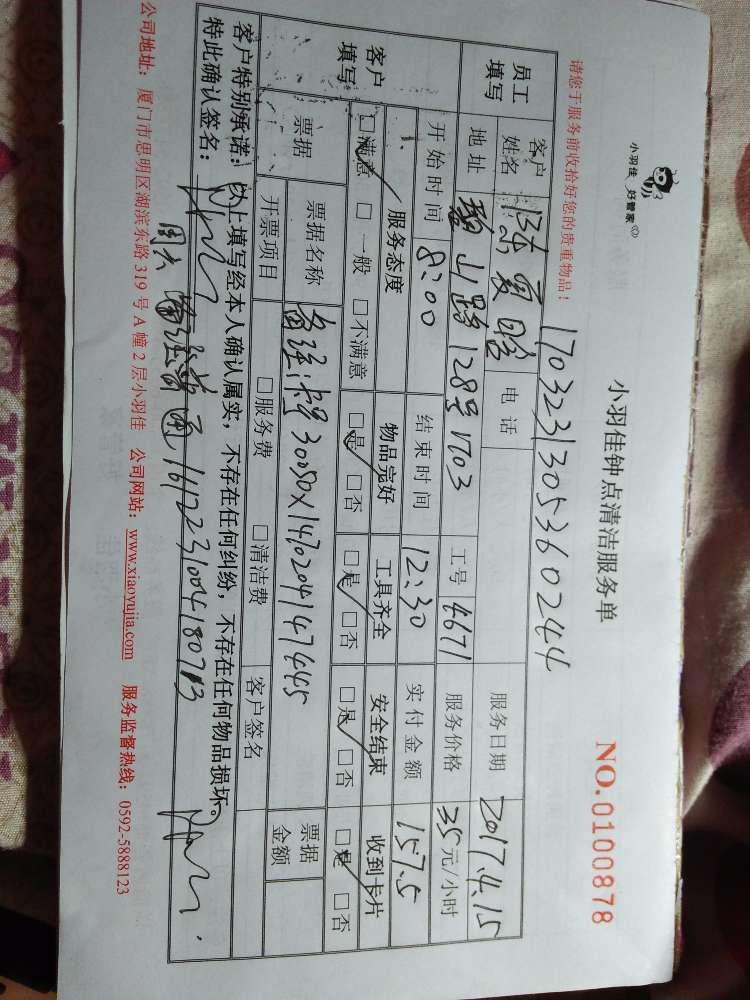 小羽佳 好管家
小羽佳钟点清洁服务单
NO.0100878
请您于服务前收拾好您的贵重物品！
1703231305360244
员工填写 客户姓名 陈夏晗 电话 服务日期 2017.4.15
地址 山路128号1703 工号 4671 服务价格 35元/小时
开始时间 8:00 结束时间 12:30 实付金额 157.5
客户填写 服务态度 物品完好 工具齐全 安全结束 收到卡片
☑满意 □一般 □不满意 ☑是 □否 ☑是 □否 ☑是 □否 ☑是 □否
票据 票据名称 3050X1470204147445 票据金额
开票项目 □服务费 □清洁费 客户签名
客户特别承诺：以上填写经本人确认属实，不存在任何纠纷，不存在任何物品损坏。
特此确认签名：
周六 普通 1612231004180713
公司地址：厦门市思明区湖滨东路319号A幢2层小羽佳 公司网站：www.xiaoyujia.com 服务监督热线：0592-5888123